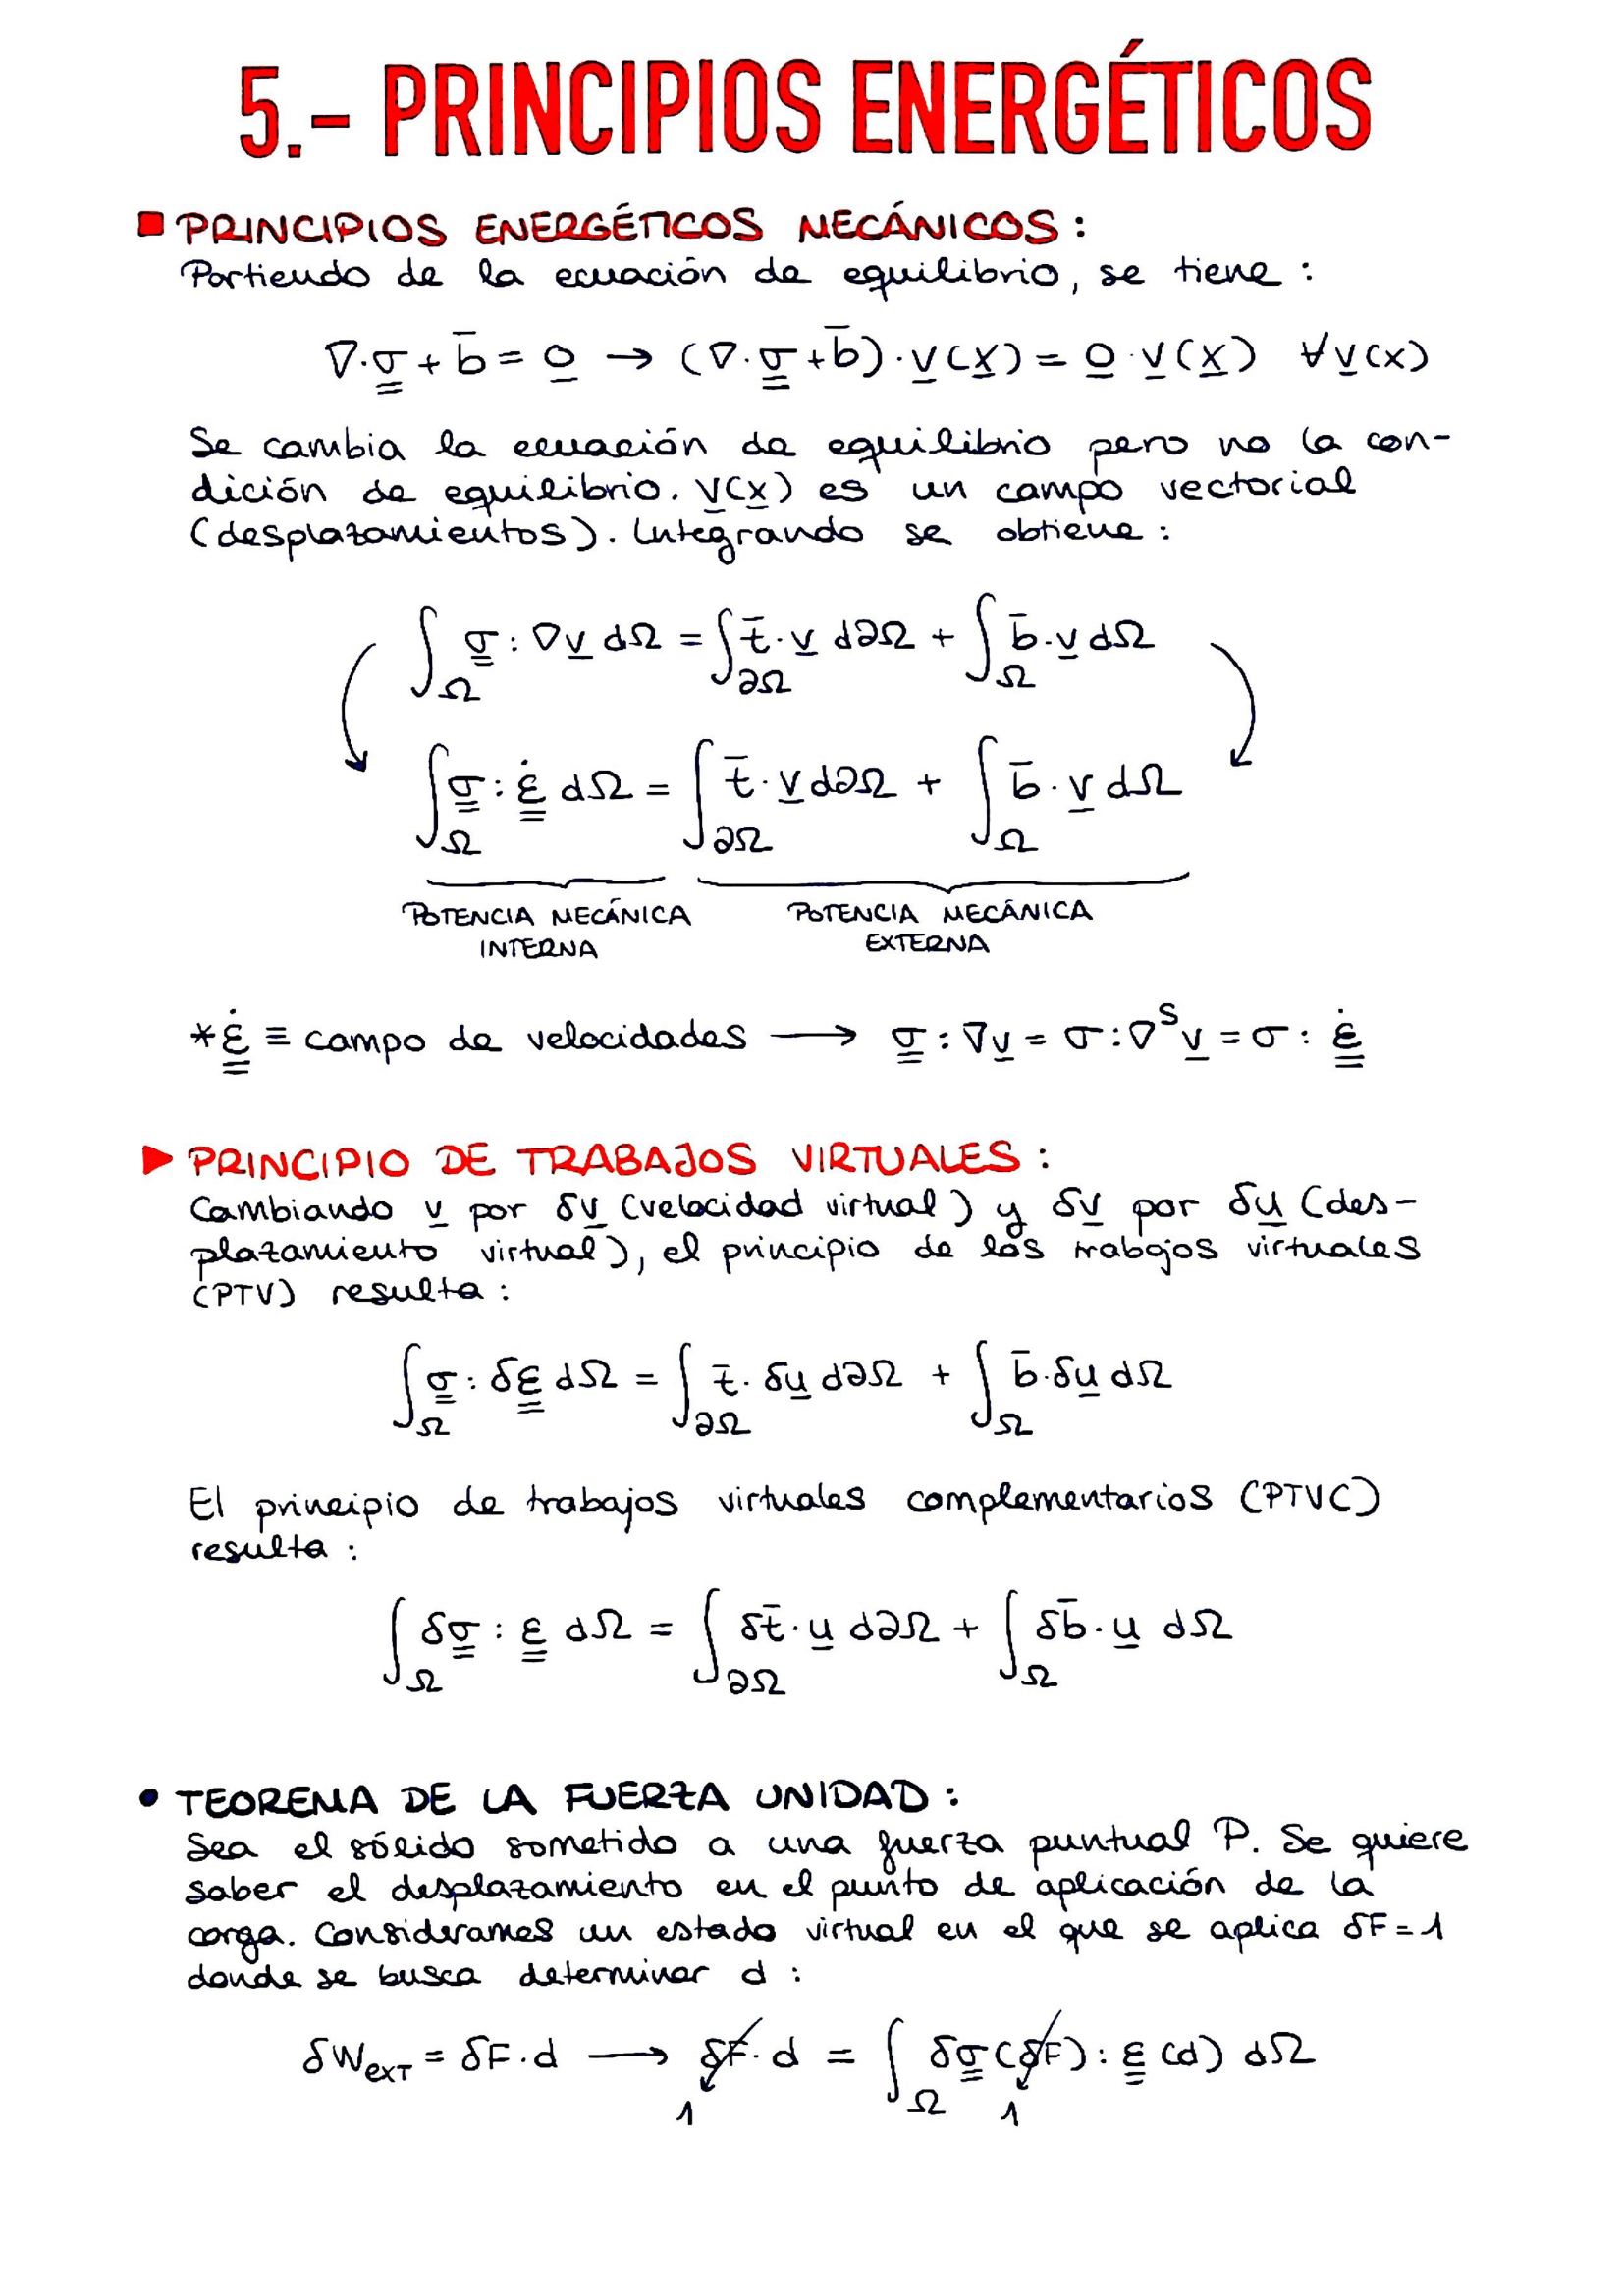 5.- PRINCIPIOS ENERGÉTICOS
PRINCIPIOS ENERGÉTICOS MECÁNICOS:
Partiendo de la ecuación de equilibrio, se tiene:
∇·σ̳ + b̄ = 0̲ → (∇·σ̳ + b̄)·v̲(x̲) = 0̲·v̲(x̲) ∀v̲(x)
Se cambia la ecuación de equilibrio pero no la con-
dición de equilibrio. v̲(x̲) es un campo vectorial
(desplazamientos). Integrando se obtiene:
∫_Ω σ̳ : ∇v̲ dΩ = ∫_∂Ω t̄·v̲ d∂Ω + ∫_Ω b̄·v̲ dΩ
∫_Ω σ̳ : ε̳̇ dΩ = ∫_∂Ω t̄·v̲ d∂Ω + ∫_Ω b̄·v̲ dΩ
POTENCIA MECÁNICA INTERNA
POTENCIA MECÁNICA EXTERNA
*ε̳̇ ≡ campo de velocidades → σ̳ : ∇v̲ = σ : ∇ˢv̲ = σ : ε̳̇
PRINCIPIO DE TRABAJOS VIRTUALES:
Cambiando v̲ por δv̲ (velocidad virtual) y δv̲ por δu̲ (des-
plazamiento virtual), el principio de los trabajos virtuales
(PTV) resulta:
∫_Ω σ̳ : δε̳ dΩ = ∫_∂Ω t̄·δu̲ d∂Ω + ∫_Ω b̄·δu̲ dΩ
El principio de trabajos virtuales complementarios (PTVC)
resulta:
∫_Ω δσ̳ : ε̳ dΩ = ∫_∂Ω δt̄·u̲ d∂Ω + ∫_Ω δb̄·u̲ dΩ
• TEOREMA DE LA FUERZA UNIDAD:
Sea el sólido sometido a una fuerza puntual P. Se quiere
saber el desplazamiento en el punto de aplicación de la
carga. Consideramos un estado virtual en el que se aplica δF = 1
donde se busca determinar d:
δW_EXT = δF·d → δF·d = ∫_Ω δσ̳(δF) : ε̳(d) dΩ
1 1